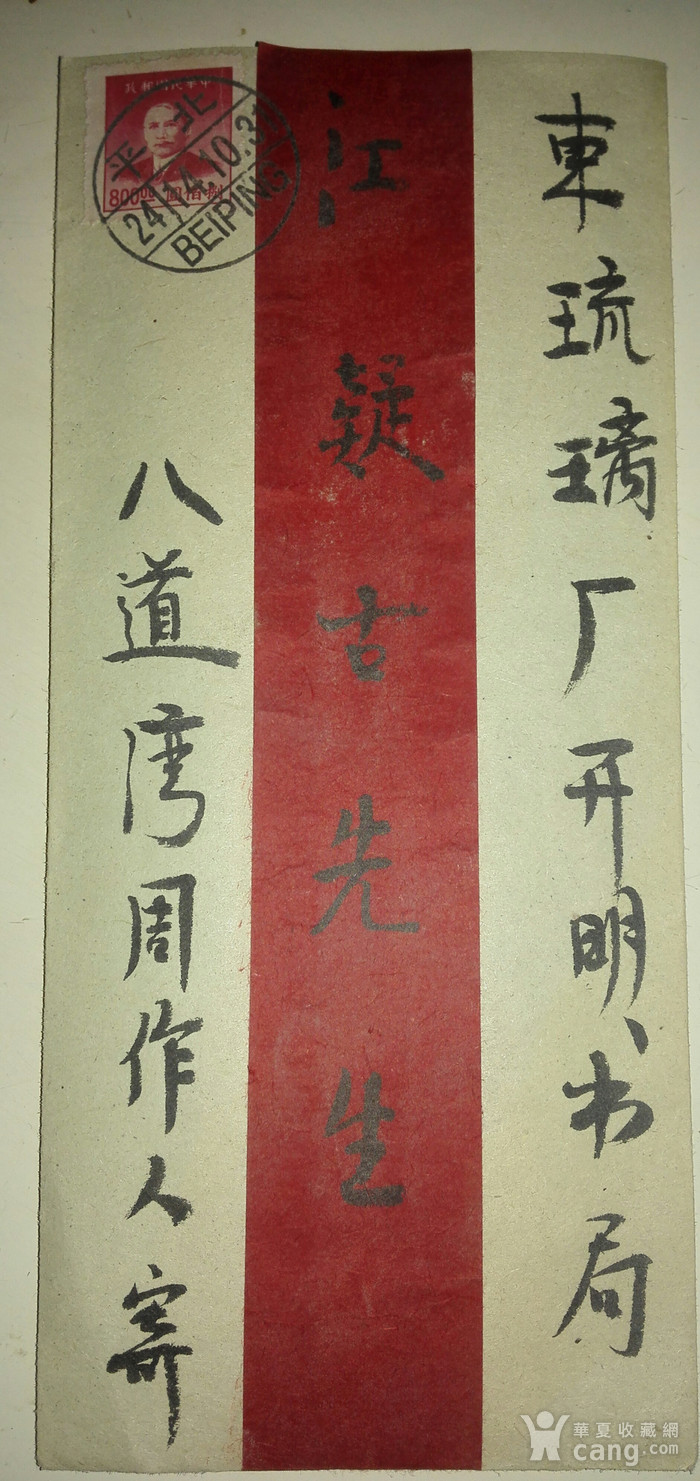 東琉璃厂开明书局
江疑古先生
八道湾周作人寄
中華民國郵政
800.00 捌佰圓
北平
24.14.10.31
BEIPING
華夏收藏網
cang.com